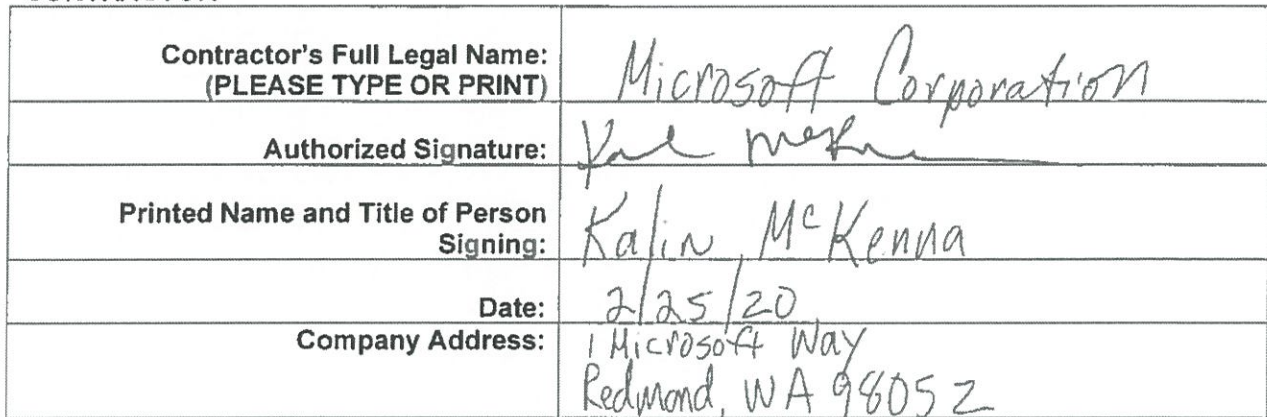 Contractor's Full Legal Name:
(PLEASE TYPE OR PRINT)
Microsoft Corporation
Authorized Signature:
Printed Name and Title of Person
Signing:
Kalin McKenna
Date:
2/25/20
Company Address:
1 Microsoft Way
Redmond, WA 98052